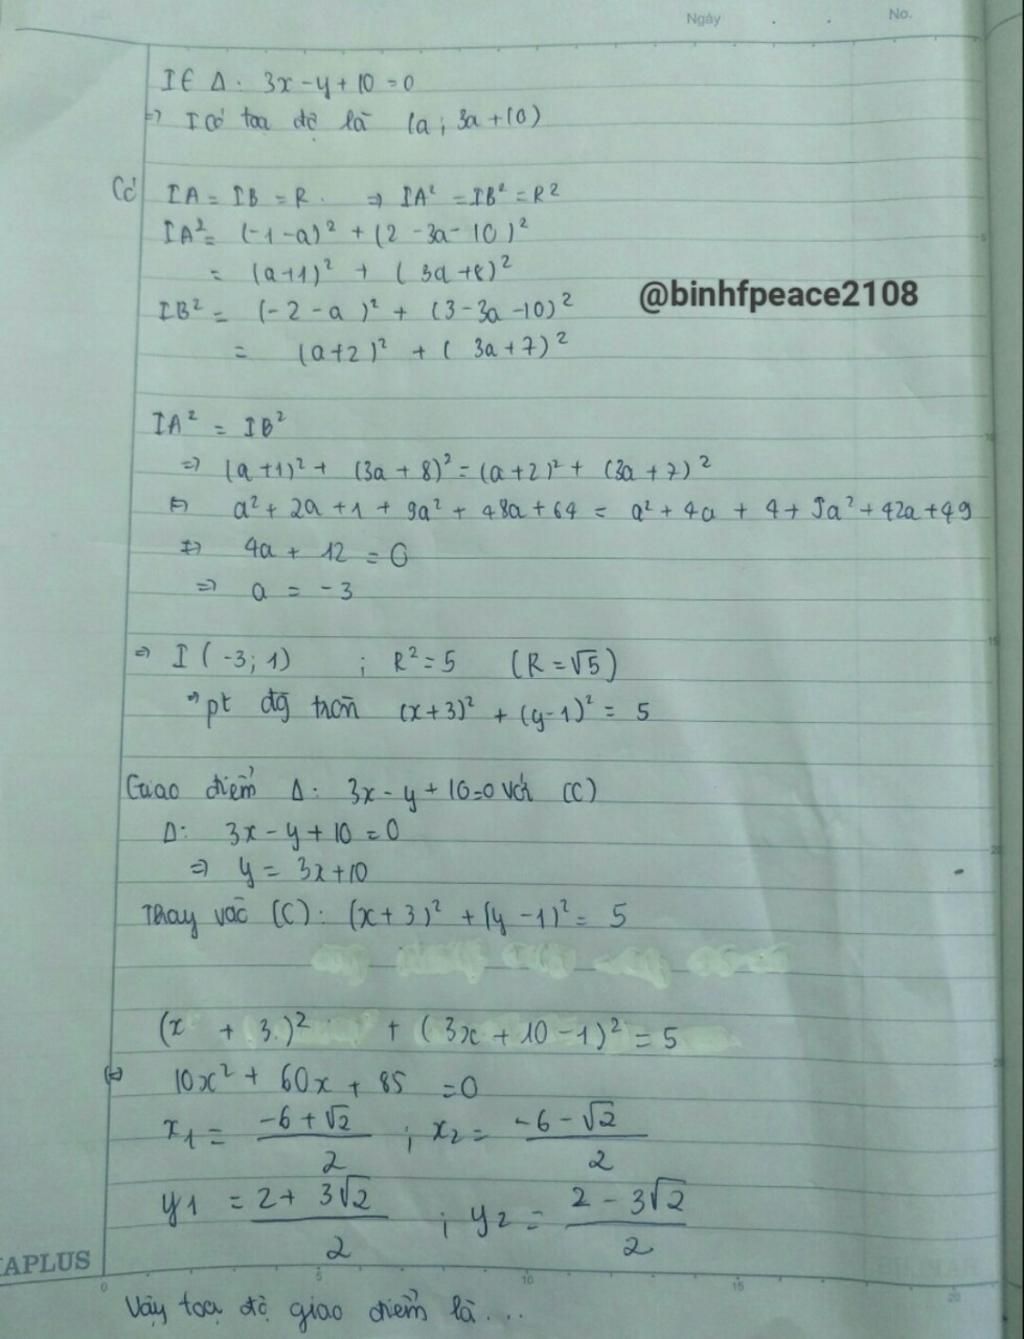 Ngày . . No.
I ∈ Δ: 3x - y + 10 = 0
=> I có toạ độ là (a; 3a + 10)
Có IA = IB = R. => IA² = IB² = R²
IA² = (-1-a)² + (2 - 3a - 10)²
= (a+1)² + (3a+8)²
@binhfpeace2108
IB² = (-2-a)² + (3-3a-10)²
= (a+2)² + (3a+7)²
IA² = IB²
=> (a+1)² + (3a+8)² = (a+2)² + (3a+7)²
<=> a² + 2a + 1 + 9a² + 48a + 64 = a² + 4a + 4 + 9a² + 42a + 49
<=> 4a + 12 = 0
=> a = -3
=> I (-3; 1) ; R² = 5 (R = √5)
=> pt đg tròn (x+3)² + (y-1)² = 5
Giao điểm Δ: 3x - y + 10 = 0 với (C)
Δ: 3x - y + 10 = 0
=> y = 3x + 10
Thay vào (C): (x+3)² + (y-1)² = 5
(x + 3)² + (3x + 10 - 1)² = 5
<=> 10x² + 60x + 85 = 0
x₁ = (-6 + √2)/2 ; x₂ = (-6 - √2)/2
y₁ = (2 + 3√2)/2 ; y₂ = (2 - 3√2)/2
APLUS
0 5 10 15 20
Vậy toạ độ giao điểm là...